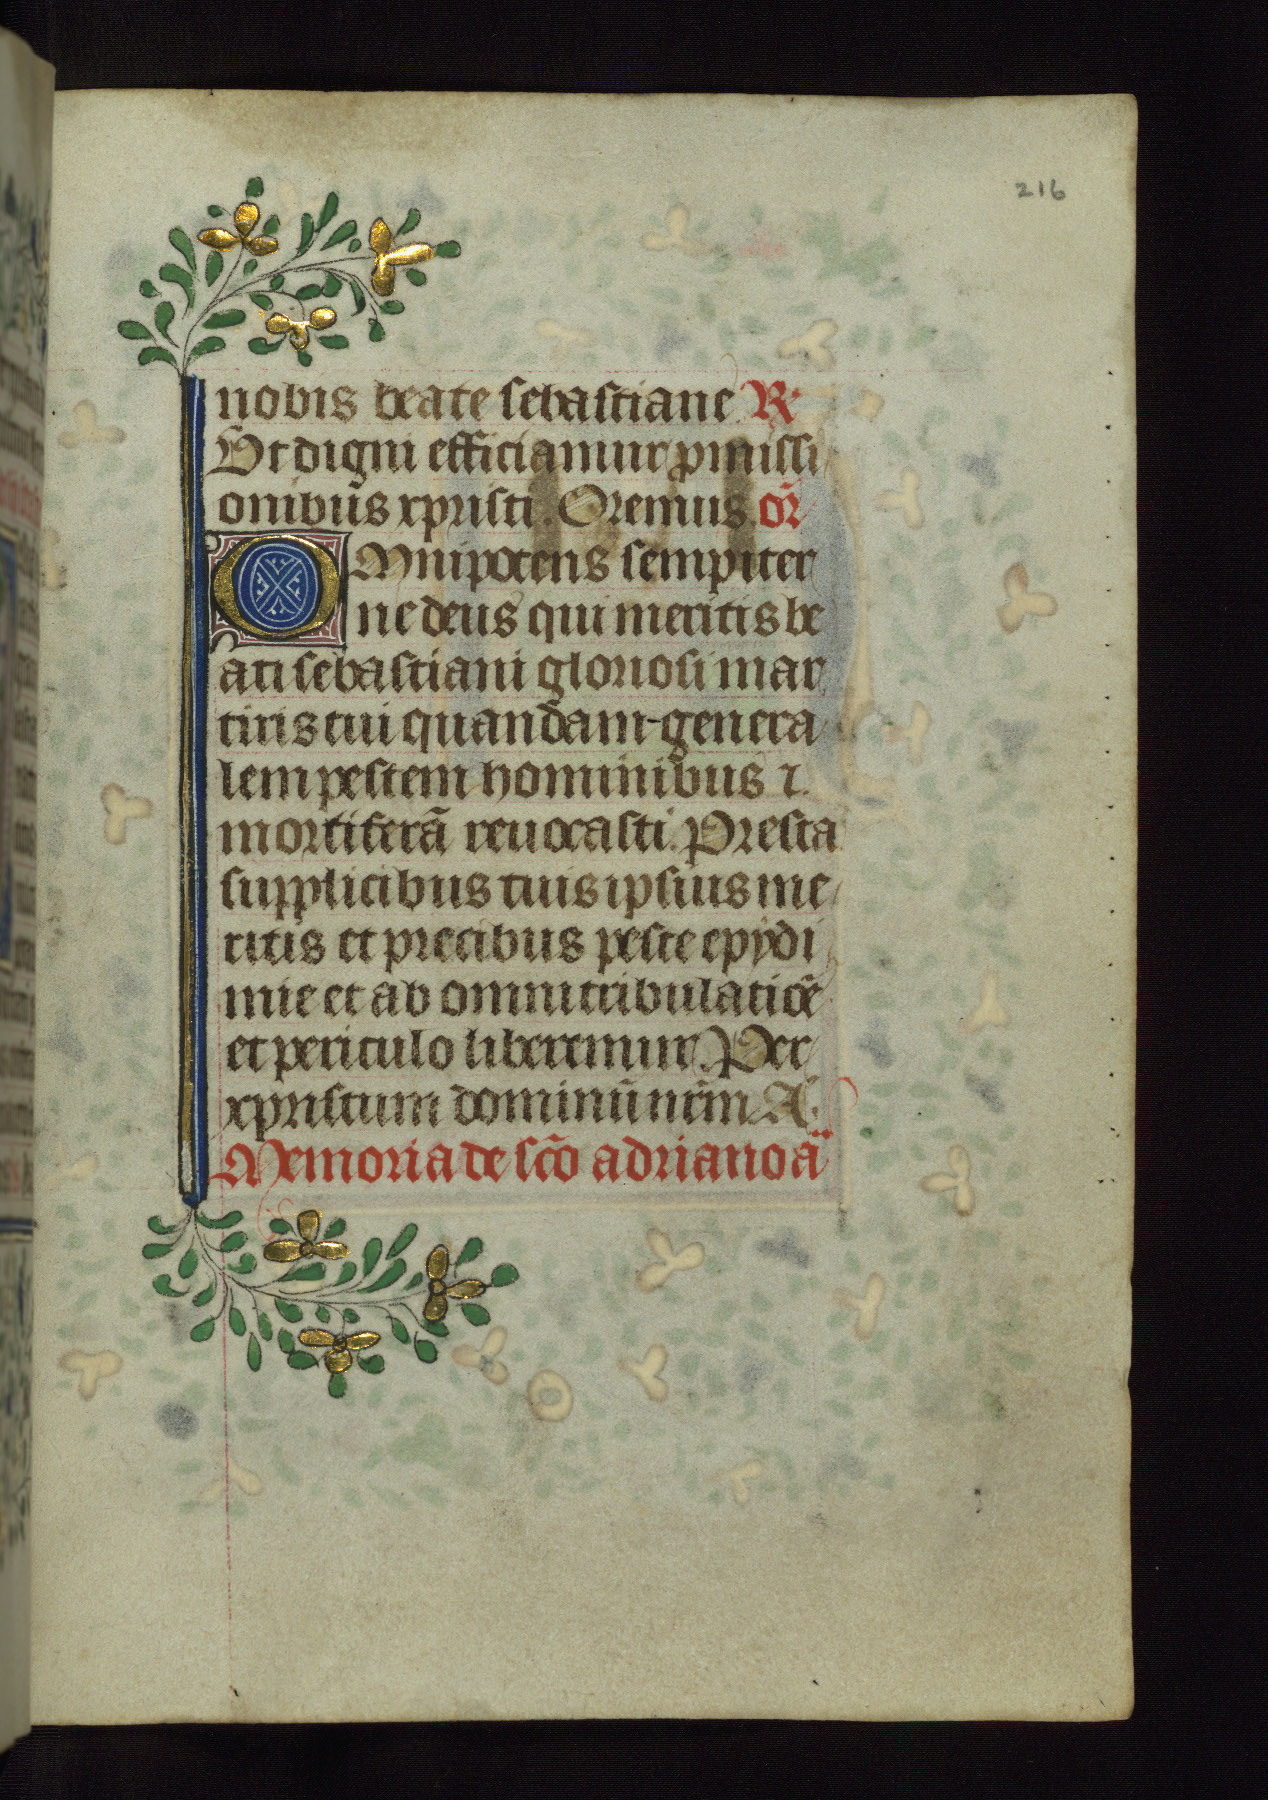 216
nobis beate sebastiane. R
Ut digni efficiamur pmissi
onibus xpristi. Oremus. or̃
Omnipotens sempiter
ne deus qui meritis be
ati sebastiani gloriosi mar
tiris tui quandam genera
lem pestem hominibus ⁊
mortiferã reuocasti. Presta
supplicibus tuis ipsius me
ritis et precibus peste epydi
mie et ab omni tribulatiõe
et periculo liberemur. Per
xpristum dominũ nrm̃ A
Memoria de sc̃o adriano ã